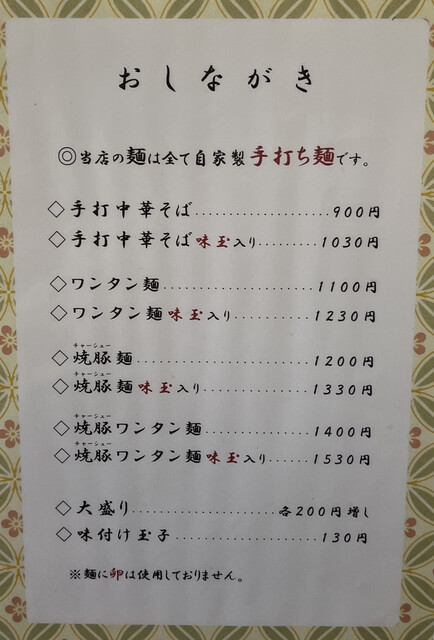 おしながき
◎当店の麺は全て自家製手打ち麺です。
◇手打中華そば....................900円
◇手打中華そば味玉入り.........1030円
◇ワンタン麺......................1100円
◇ワンタン麺味玉入り............1230円
チャーシュー
◇焼豚麺..........................1200円
チャーシュー
◇焼豚麺味玉入り................1330円
チャーシュー
◇焼豚ワンタン麺................1400円
チャーシュー
◇焼豚ワンタン麺味玉入り......1530円
◇大盛り......................各200円増し
◇味付け玉子.....................130円
※麺に卵は使用しておりません。